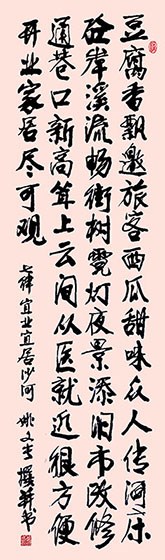 豆腐香飘邀旅客西瓜甜味众人传河床
砼岸溪流畅街树霓灯夜景添旧市改修
通巷口新高耸上云间从医就近很方便
开业家居尽可观
七律宜业宜居沙河 姚文 撰并书